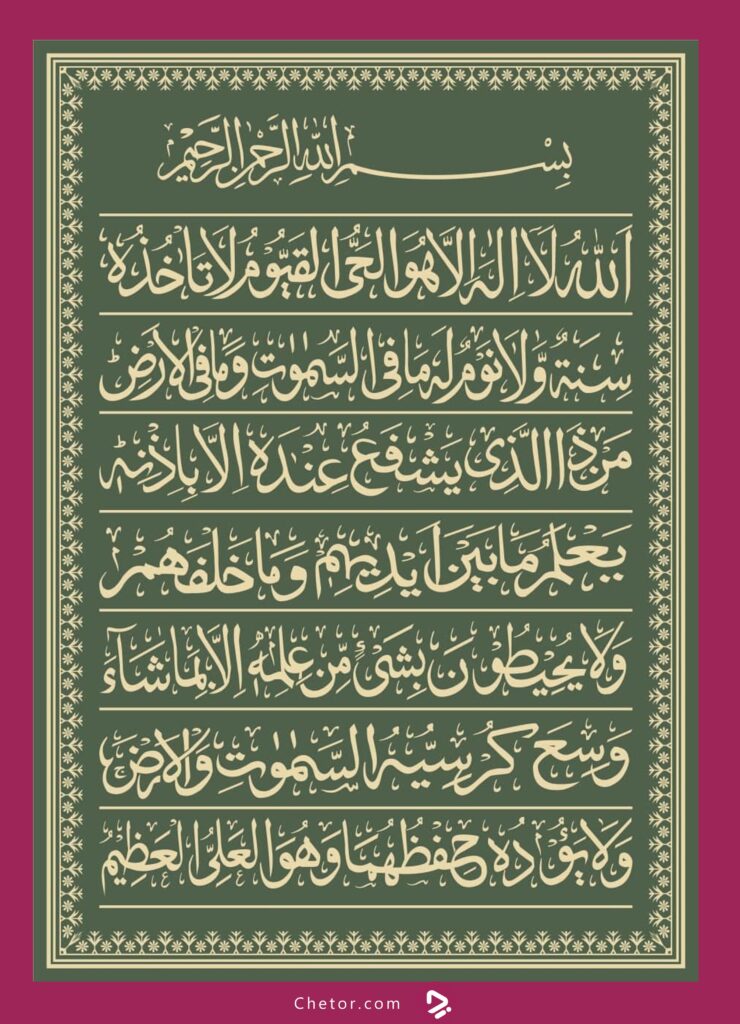 بِسْمِ اللهِ الرَّحْمٰنِ الرَّحِيْمِ
اَللهُ لَا اِلٰهَ اِلَّا هُوَ الْحَیُّ الْقَیُّوْمُ لَا تَاْخُذُهٗ
سِنَةٌ وَّلَا نَوْمٌ لَهٗ مَا فِی السَّمٰوٰتِ وَمَا فِی الْاَرْضِؕ
مَنْ ذَا الَّذِیْ یَشْفَعُ عِنْدَهٗ اِلَّا بِاِذْنِهٖؕ
یَعْلَمُ مَا بَیْنَ اَیْدِیْهِمْ وَمَا خَلْفَهُمْ
وَلَا یُحِیْطُوْنَ بِشَیْءٍ مِّنْ عِلْمِهٖ اِلَّا بِمَا شَآءَ
وَسِعَ كُرْسِیُّهُ السَّمٰوٰتِ وَالْاَرْضَۚ
وَلَا یَـُٔوْدُهٗ حِفْظُهُمَا وَهُوَ الْعَلِیُّ الْعَظِیْمُ
Chetor.com